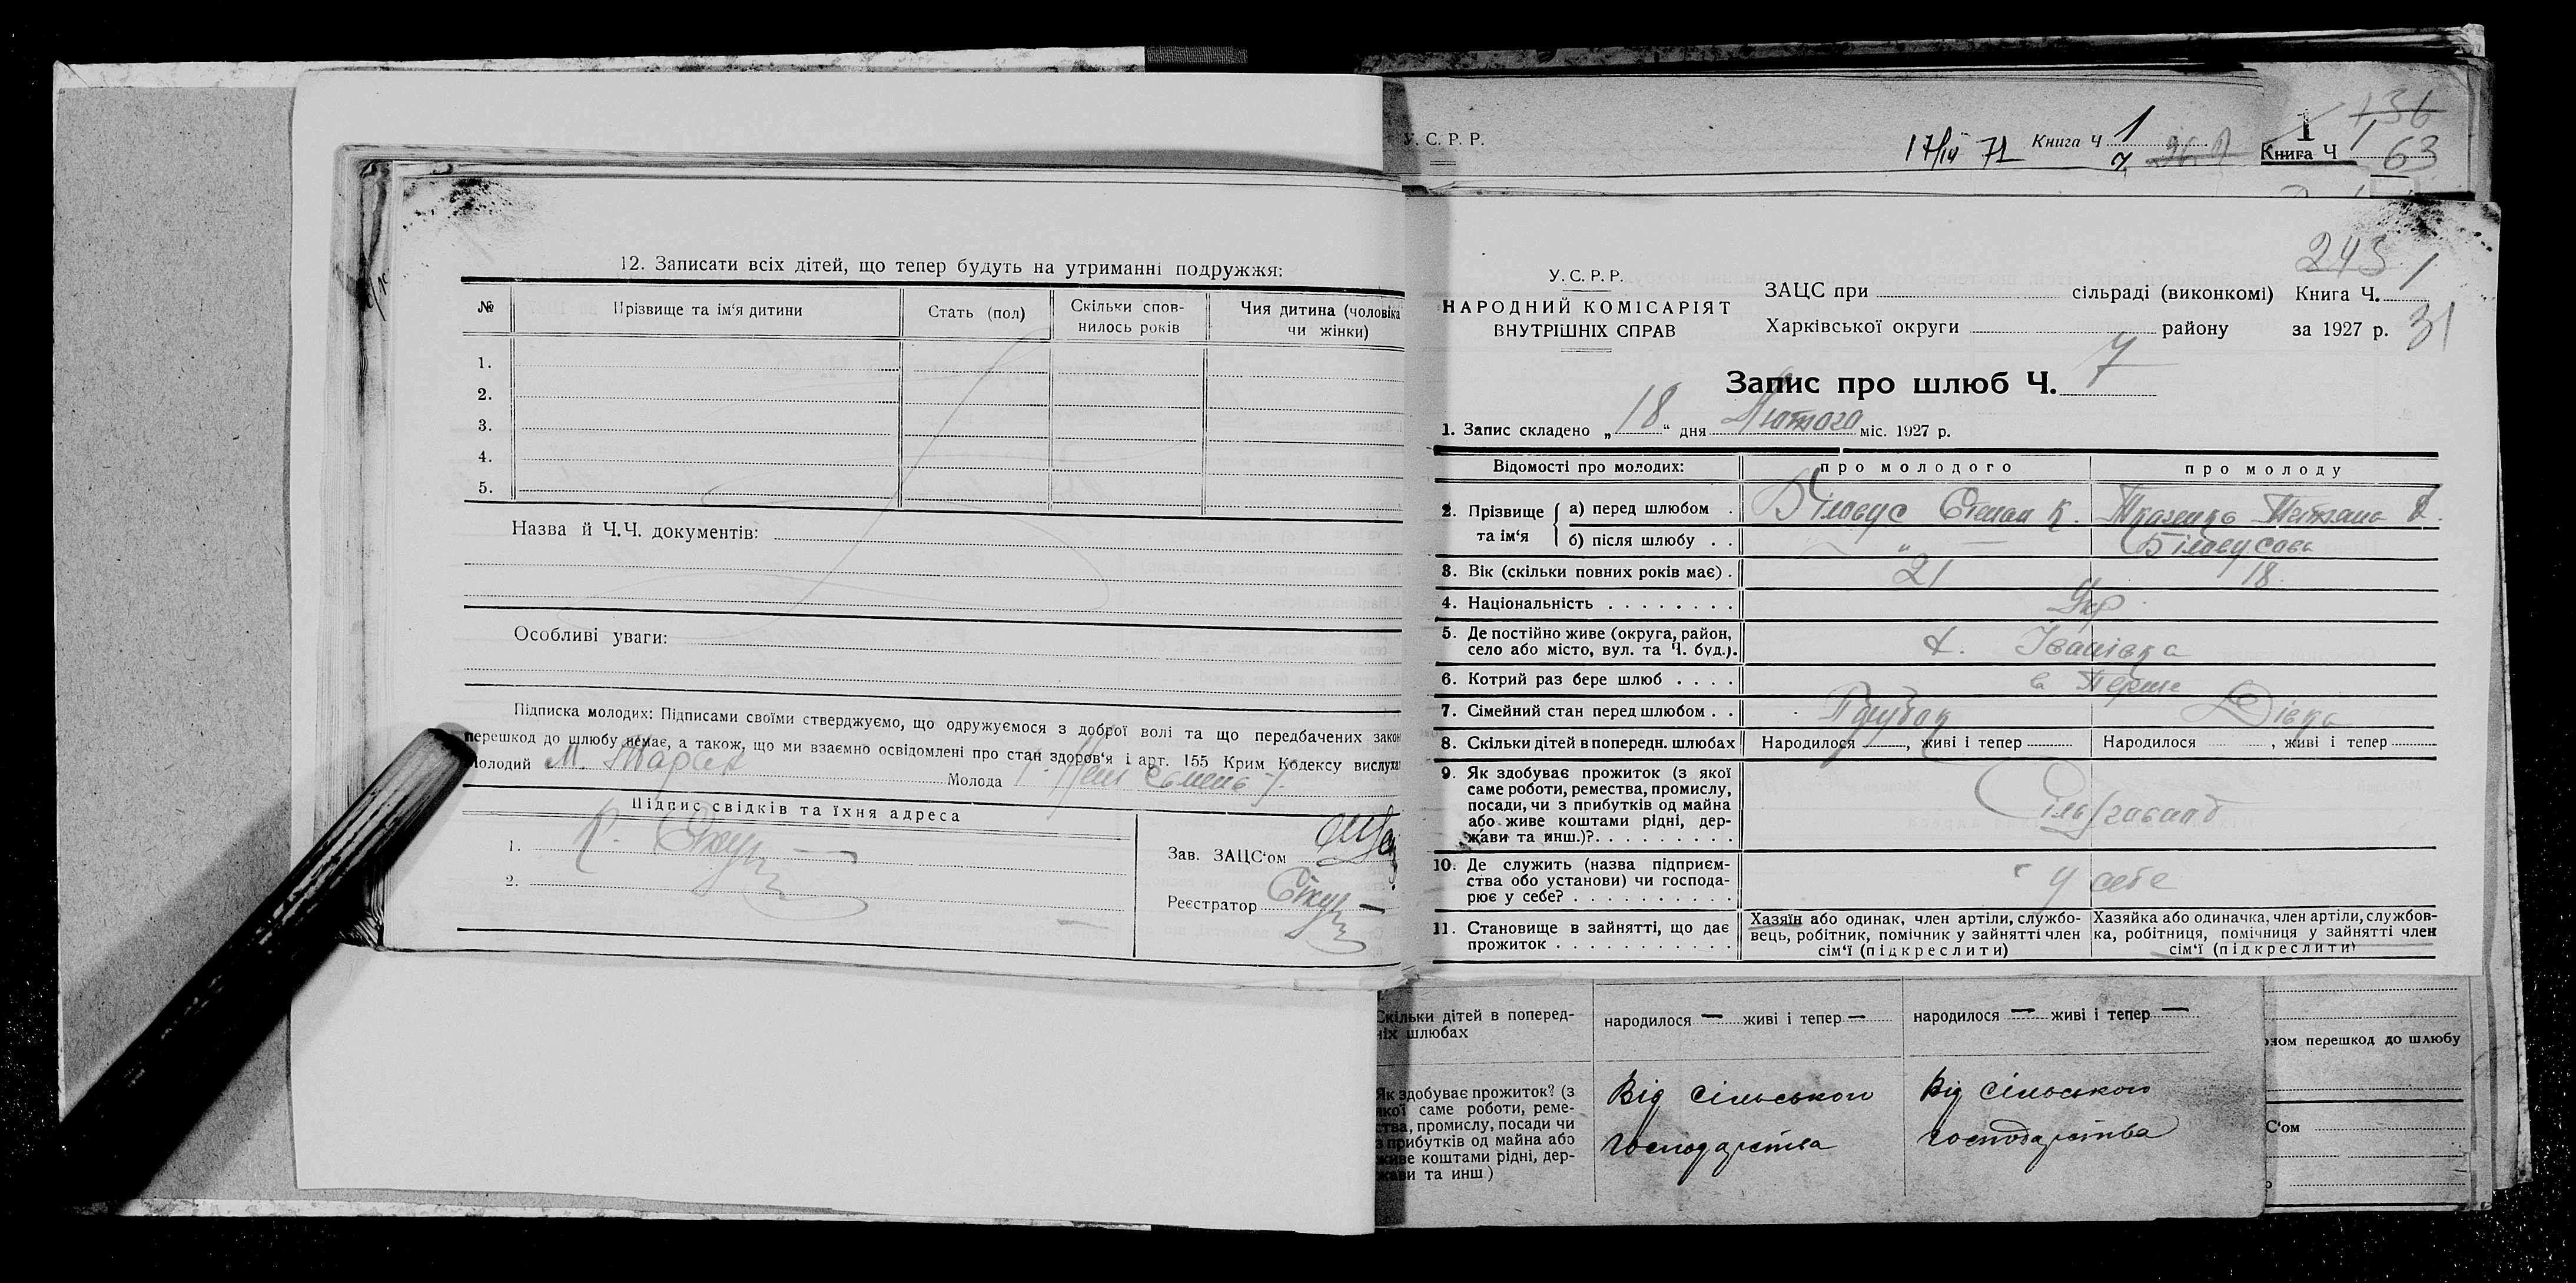 12. Записати всіх дітей, що тепер будуть на утриманні подружжя:
№ Прізвище та ім'я дитини Стать (пол) Скільки спов-нилось років Чия дитина (чоловіка чи жінки)
1.
2.
3.
4.
5.
Назва й Ч.Ч. документів:
Особливі уваги:
Підписка молодих: Підписами своїми стверджуємо, що одружуємося з доброї волі та що передбачених закон
перешкод до шлюбу немає, а також, що ми взаємно освідомлені про стан здоров'я і арт. 155 Крим Кодексу вислуха
Молодий Молода
Підпис свідків та їхня адреса
1.
2.
Зав. ЗАЦС'ом
Реєстратор
У. С. Р. Р.
17/IV 71 Книга Ч 1
Книга Ч 1
136
63
У. С. Р. Р.
НАРОДНИЙ КОМІСАРІЯТ
ВНУТРІШНІХ СПРАВ
243
ЗАЦС при сільраді (виконкомі) Книга Ч. 1
Харківської округи району за 1927 р. 31
Запис про шлюб Ч. 7
1. Запис складено „18“ дня Лютого міс. 1927 р.
Відомості про молодих: про молодого про молоду
2. Прізвище та ім'я
а) перед шлюбом . Біловус Степан К. Ткаченко Тетяна
б) після шлюбу . . — " — Біловусова
3. Вік (скільки повних років має) . 21 18
4. Національність . . . . . . . . Укр.
5. Де постійно живе (округа, район,
село або місто, вул. та Ч. буд.). х. Іванівка
6. Котрий раз бере шлюб . . . . в Перше
7. Сімейний стан перед шлюбом . . Парубок Дівка
8. Скільки дітей в попередн. шлюбах Народилося , живі і тепер Народилося , живі і тепер
9. Як здобуває прожиток (з якої
саме роботи, ремества, промислу,
посади, чи з прибутків од майна
або живе коштами рідні, дер-
жави та инш.)?. . . . . . . . .
10. Де служить (назва підприєм-
ства або установи) чи господа-
рює у себе? . . . . . . . . . . У себе
11. Становище в зайнятті, що дає
прожиток . . . . . . . . . . .
Хазяїн або одинак, член артіли, службо-
вець, робітник, помічник у зайнятті член
сім'ї (підкреслити)
Хазяйка або одиначка, член артіли, службов-
ка, робітниця, помічниця у зайнятті член
сім'ї (підкреслити)
Скільки дітей в поперед-
ніх шлюбах
народилося — живі і тепер —
народилося — живі і тепер —
Як здобуває прожиток? (з
якої саме роботи, реме-
ства, промислу, посади чи
з прибутків од майна або
живе коштами рідні, дер-
жави та инш)
Від сільського
господарства
Від сільського
господарства
ном перешкод до шлюбу
С'ом